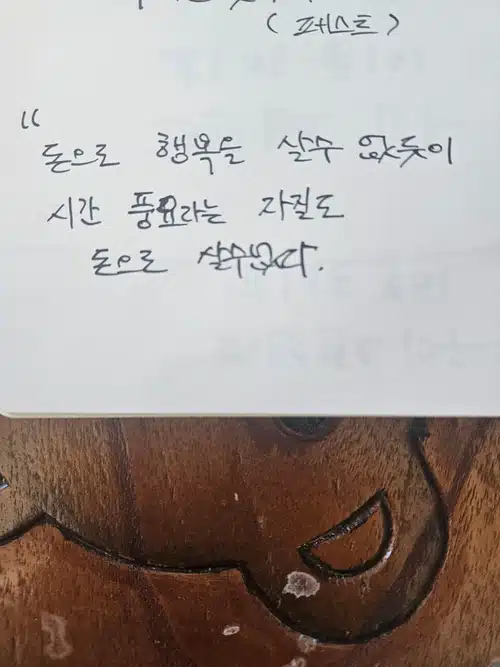 ( 페스트 )
“
돈으로 행복을 살수 없듯이
시간 풍요라는 자질도
돈으로 살수없다.